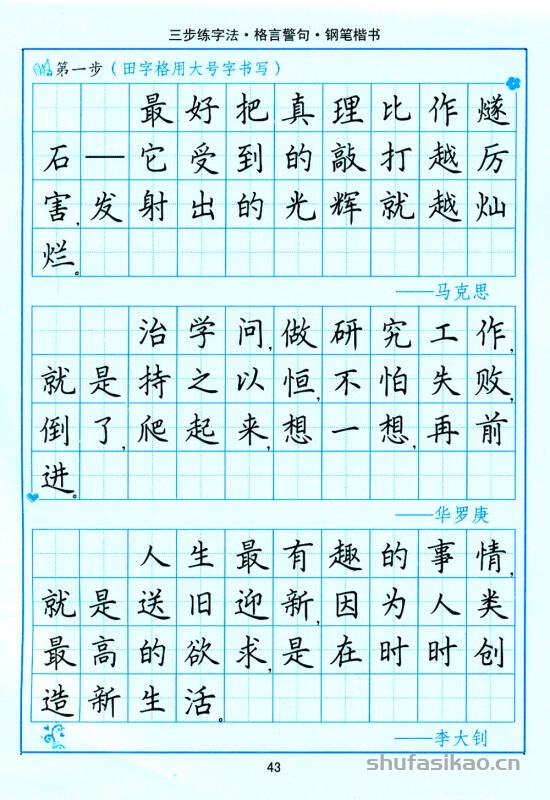 三步练字法·格言警句·钢笔楷书
第一步（田字格用大号字书写）
最好把真理比作燧
石——它受到的敲打越厉
害，发射出的光辉就越灿
烂。
——马克思
治学问，做研究工作，
就是持之以恒，不怕失败，
倒了，爬起来，想一想，再前
进。
——华罗庚
人生最有趣的事情，
就是送旧迎新，因为人类
最高的欲求，是在时时创
造新生活。
——李大钊
43
shufasikao.cn